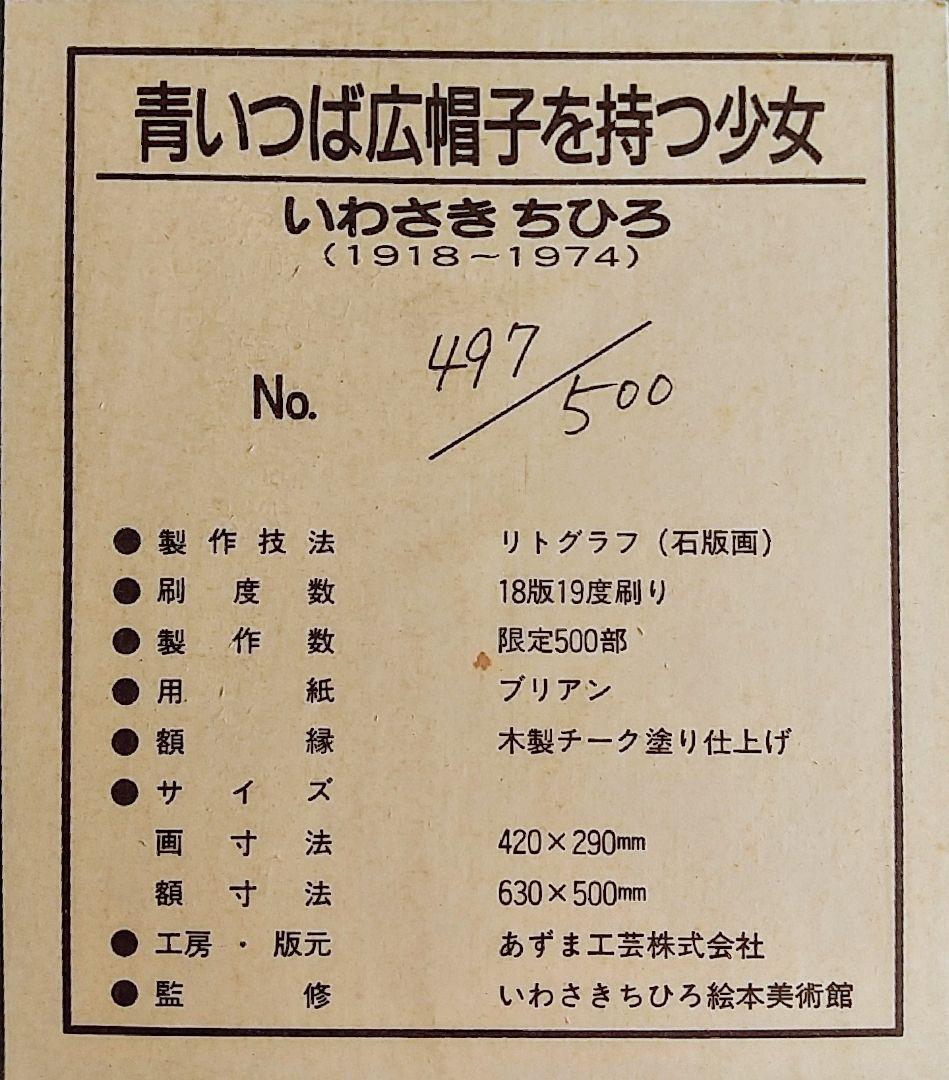 青いつば広帽子を持つ少女
いわさき ちひろ
(1918～1974)
No. 497/500
●製作技法 リトグラフ(石版画)
●刷度数 18版19度刷り
●製作数 限定500部
●用紙 ブリアン
●額縁 木製チーク塗り仕上げ
●サイズ
画寸法 420×290mm
額寸法 630×500mm
●工房・版元 あずま工芸株式会社
●監修 いわさきちひろ絵本美術館